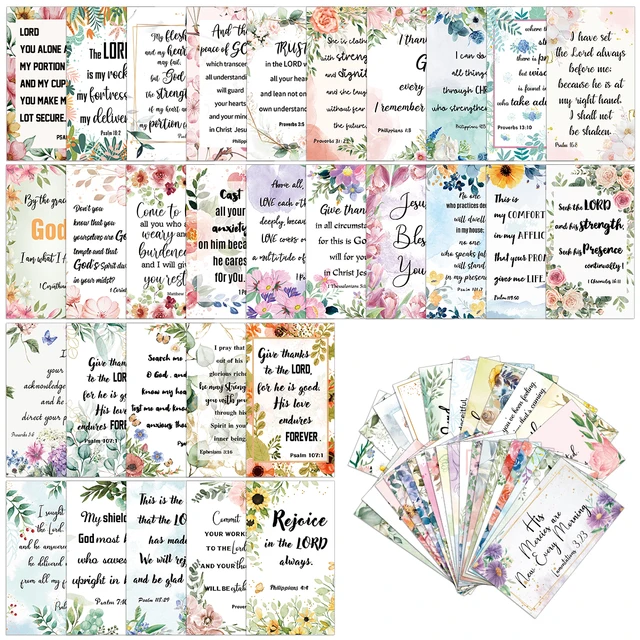 LORD
YOU ALONE
MY PORTION
AND MY CUP
YOU MAKE M
LOT SECURE.
The LORD
is my rock
my fortress
my deliver
Psalm 18:2
My flesh
and my hear
may fail,
but God
the strength
of my heart
my portion
And the
peace of GO
which transcend
all understand
will guard
your hearts
and your min
in Christ Jesu
TRUST
in the LORD w
all your hear
and lean not on
own understan
Proverbs 3:5
She is cloth
with stren
and dignit
and she laug
without fear
the future.
Proverbs 31:25
I than
G
every
I remember
Philippians 1:3
I can do
all things
through CH
who strengthen
where th
there is
but wis
is found in
who take ad
Proverbs 13:10
I have set
the Lord always
before me:
because he is at
my right hand.
I shall not
be shaken.
Psalm 16:8
By the grac
God
I am what I
1 Corinthia
Don't you
know that you
yourselves are G
temple and that
God's Spirit dw
in your midst?
Come to
all you who
weary and
burdene
and I will giv
you rest
Matthew
Cast
all your
anxiety
on him becau
he cares
for you.
Above all,
LOVE each othe
deeply, becaus
LOVE covers ov
a multitude of
Give than
in all circumstan
for this is Go
will for you
in Christ Jes
1 Thessalonians 5:
Jesu
Bles
You
No one
who practices de
will dwell
in my house;
no one
who speaks fal
will stand
in my presen
Psalm 101:7
This is
my COMFORT
in my AFFLIC
that your PRO
gives me LIFE.
Psalm 119:50
Seek the LORD
and his strength;
Seek his Presence
continually!
1 Chronicles 16:11
I
your
acknowledge
and he
direct your p
Proverbs 3:6
Give than
to the LO
for he is good.
His love
endures
FOREVER.
Psalm 107:1
Search me
O God, and
know my hea
test me and know
anxious tho
I pray that
out of his
glorious riche
he may streng
you with pow
through his
Spirit in you
inner being.
Ephesians 3:16
Give thanks
to the LORD,
for he is good.
His love
endures
FOREVER.
Psalm 107:1
I sought
the Lord,
and he answere
he delivered
from all my f
My shield
God most h
who saves
upright in h
Psalm 7:10
This is the
that the LO
has made
We will rejo
and be glad
Psalm 118:24
Commit
YOUR WORK
TO THE LORD
AND YOUR
WILL BE
Rejoice
in the LORD
always.
Philippians 4:4
you've been feeling
His
Mercies are
New Every Morning
Lamentations 3:23